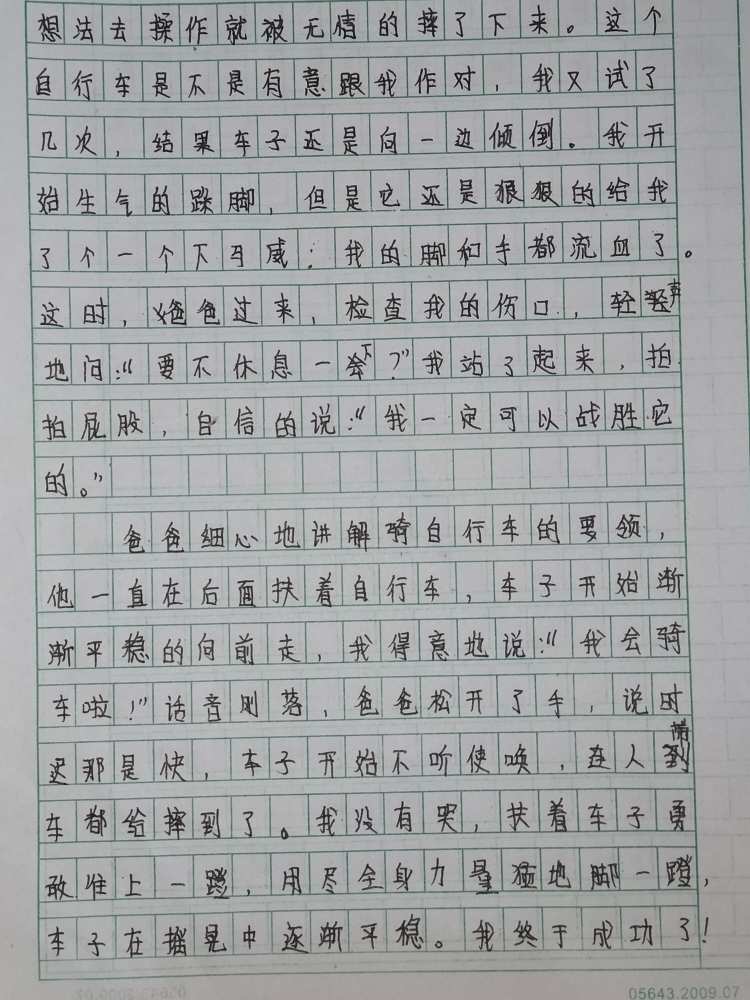 想法去操作就被无情的摔了下来。这个
自行车是不是有意跟我作对，我又试了
几次，结果车子还是向一边倾倒。我开
始生气的跺脚，但是它还是狠狠的给我
了个一个下马威：我的脚和手都流血了。
这时，爸爸过来，检查我的伤口，轻轻声
地问：“要不休息一会下？”我站了起来，拍
拍屁股，自信的说：“我一定可以战胜它
的。”
爸爸细心地讲解骑自行车的要领，
他一直在后面扶着自行车，车子开始渐
渐平稳的向前走，我得意地说：“我会骑
车啦！”话音刚落，爸爸松开了手，说时
迟那是快，车子开始不听使唤，连人
车都给摔到了。我没有哭，扶着车子勇
敢准上一蹬，用尽全身力量猛地脚一蹬，
车子在摇晃中逐渐平稳。我终于成功了！
05643.2009.07